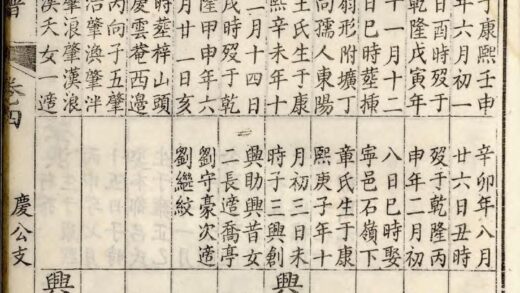 于康熙壬申
年六月初一
日酉時歿于
乾隆戊寅年
十一月十二
日巳時葬揀
扇形附壙丁
向孺人東陽
王氏生于康
熙辛未年十
二月十四日
戌時歿于乾
隆甲申年六
月廿一日亥
時葬梓山頭
慶雲菴西邉
丙向子五肇
浩肇渙肇泮
肇浪肇漢浪
溪夭女一適
辛卯年八月
廿六日丑時
歿于乾隆丙
申年二月初
八日巳時娶
寧邑石嶺下
章氏生于康
熙庚子年十
月初三日未
時子三興創
興助興昔女
二長適喬亭
劉守豪次適
劉繼紋
興
興
譜
卷四
慶公支